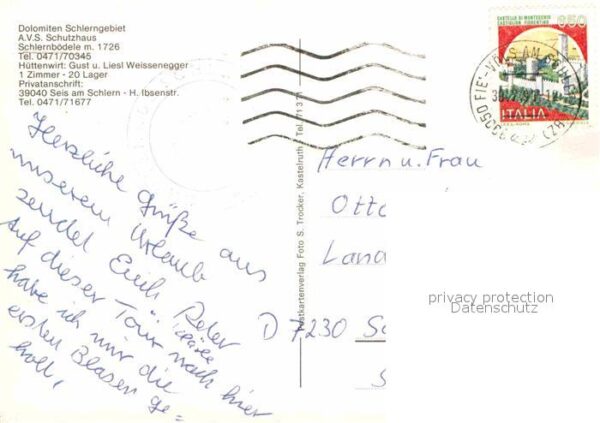 Dolomiten Schlerngebiet
A.V.S. Schutzhaus
Schlernbödele m. 1726
Tel. 0471/70345
Hüttenwirt: Gust u. Liesl Weissenegger
1 Zimmer - 20 Lager
Privatanschrift:
39040 Seis am Schlern - H. Ibsenstr.
Tel. 0471/71677
Herzliche Grüße aus
unserem Urlaub
sendet Euch Peter
Auf dieser Tour nach hier
habe ich mir die
ersten Blasen ge=
holt,
Postkartenverlag Foto S. Trocker, Kastelruth - Tel. 71371
CASTELLO DI MONTECCHIO
CASTIGLION FIORENTINO
650
ITALIA
39050 FIE'-VÖLS AM
(BZ)
Herrn u. Frau
Otto
Land
D 7230 Sc
S
privacy protection
Datenschutz